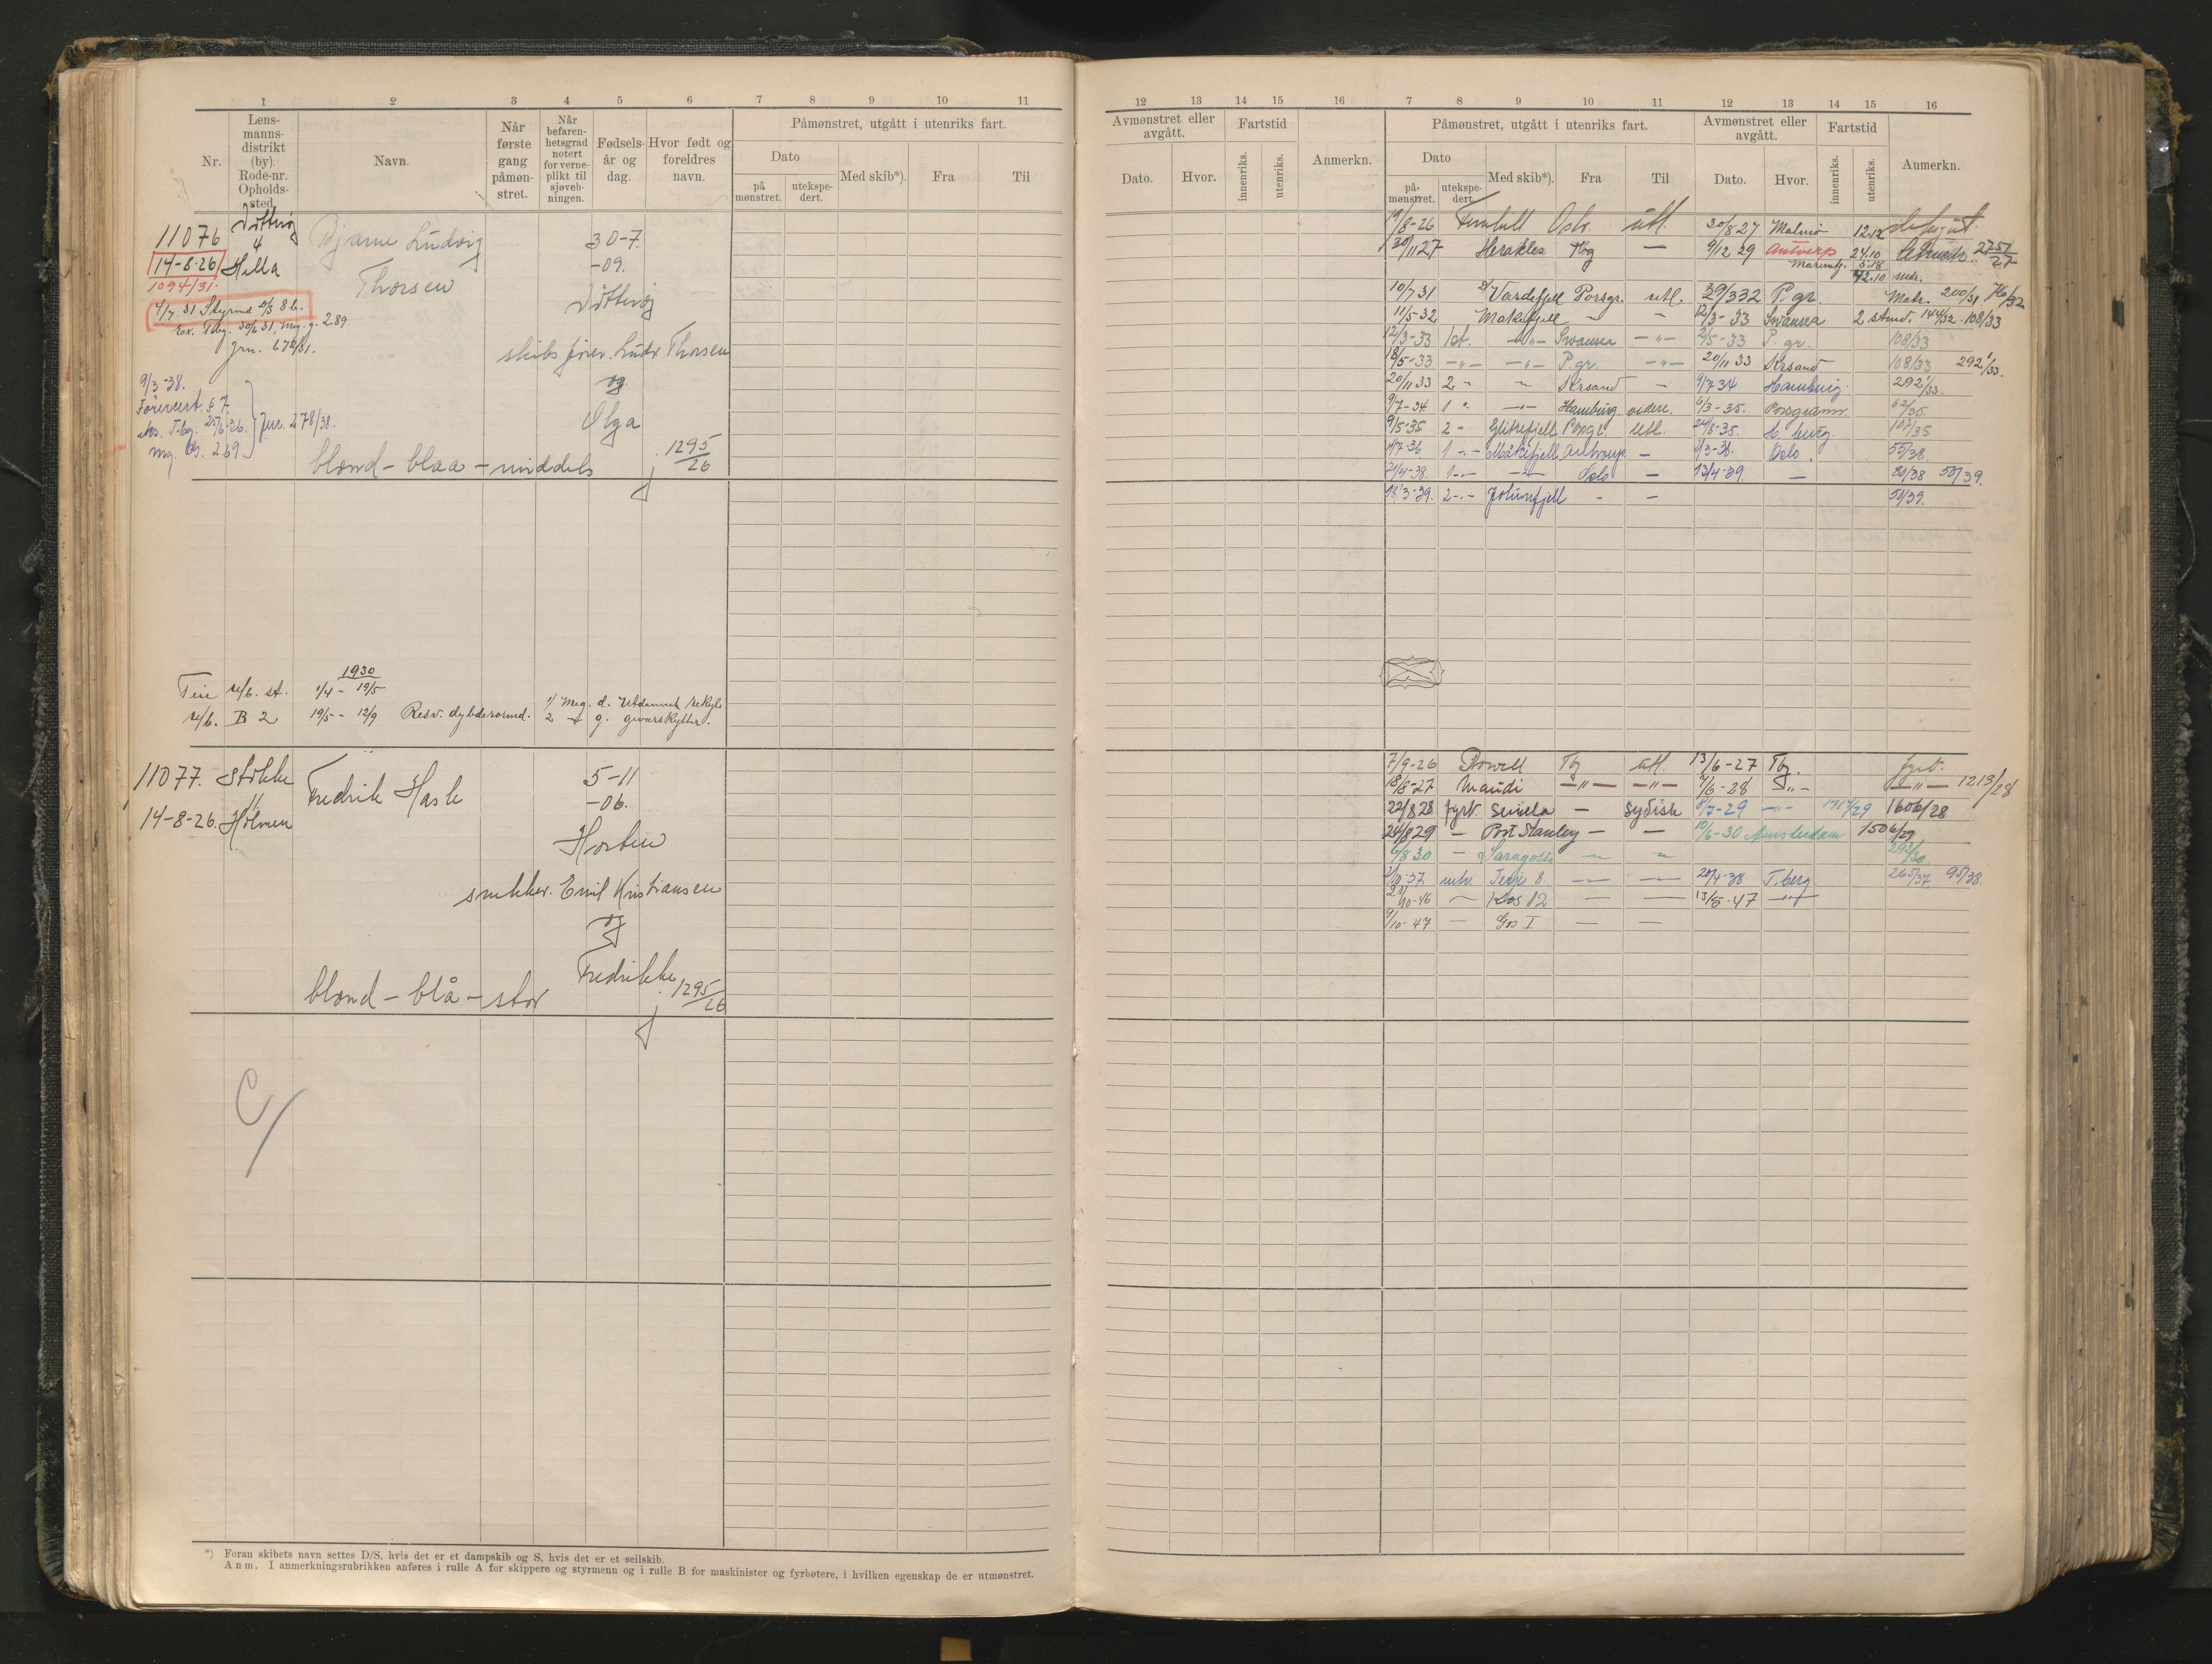 1 2 3 4 5 6 7 8 9 10 11
Nr.
Lens-
manns-
distrikt
(by).
Rode-nr.
Opholds-
sted.
Navn.
Når
første
gang
påmøn-
stret.
Når
befaren-
hetsgrad
notert
for verne-
plikt til
sjøveb-
ningen.
Fødsels-
år og
dag.
Hvor født og
foreldres
navn.
Påmønstret, utgått i utenriks fart.
Dato
på
mønstret.
utekspe-
dert.
Med skib*).
Fra
Til
11076
4
14-8-26 Hella
1094/31.
Bjarne Ludvig
Thorsen
30-7.
-09.
4/7 31 Styrmd 8 b.
Ex. Tbg. 30/6 31, mg. g. 2.89.
skibsfører Ludv Thorsen
og
Olga
9/3-38.
§ 7
Jnr. 278/38.
2.69
blond - blaa - middels
1295/26
1930
1/4 - 19/5
B 2 19/5 - 12/9
11077. Stokke
11
14-8-26. Holmen
Fredrik Hasle
5-11
-06.
Horten
snekker. Emil Kristiansen
og
Fredrikke
blond - blå - stor
1295/26
*) Foran skibets navn settes D/S, hvis det er et dampskib og S, hvis det er et seilskib.
Anm. I anmerkningsrubrikken anføres i rulle A for skippere og styrmenn og i rulle B for maskinister og fyrbøtere, i hvilken egenskap de er utmønstret.
12 13 14 15 16 7 8 9 10 11 12 13 14 15 16
Avmønstret eller
avgått.
Dato.
Hvor.
Fartstid
innenriks.
utenriks.
Anmerkn.
Påmønstret, utgått i utenriks fart.
Dato
på-
mønstret.
utekspe-
dert.
Med skib*).
Fra
Til
Avmønstret eller
avgått.
Dato.
Hvor.
Fartstid
innenriks.
utenriks.
Anmerkn.
19/8-26 Fernhill Oslo utl. 30/8 27 Malmö 12.12
30/11 27 Herakles Tbg — 9/12 29 Antwerp 24.10 2757/27
5.18
42.10 mdr.
10/7 31 Vardefjell Porsgr. utl. 29/3 32 P. gr. Matr. 200/31. 76/32
11/5-32 Makefjell - - 12/3-33 Swansea 2 stmd. 144/32 - 108/33
12/3-33 1st. -"- Swansea -"- 2/5-33 P. gr. 108/33
18/5-33 -"- -"- P. gr. -"- 20/11 33 Krsand 108/33 292/33.
20/11 33 2 - - Krsand - 9/7 34 Hamburg. 292/33.
9/7-34 1 -"- Hamburg videre. 6/3-35. Porsgrunn. 62/35.
9/5-35 2 - Glittrefjell Porsgr. utl. 24/8-35. H. burg. 107/35
1 -"- Måkefjell Antwerp - Oslo. 55/38.
21/4-38. 1 -"- -"- Oslo - 13/4-39. - 80/38 50/39.
18/3-39. 2 -"- Jotunfjell - - 50/39.
7/9-26 Tbg utl. 13/6-27 Tbg. fyrb.
18/8-27 Maudi -"- -"- 7/6-28 -"- -"- 1213/28
22/8 28 fyrb. Sevilla - Sydisk 8/7-29 -"- 1606/28
24/8 29 - Port Stanley - - 10/6-30 Amsterdam 1506/29
6/8 30 - Saragossa - - 292/30.
2/10-37. Terje 8. - - 20/4-38 T.berg. 265/37 95/38.
21/10-46 - Kos 12 - - 13/5-47 -"-
9/10-47 - Gos I - -